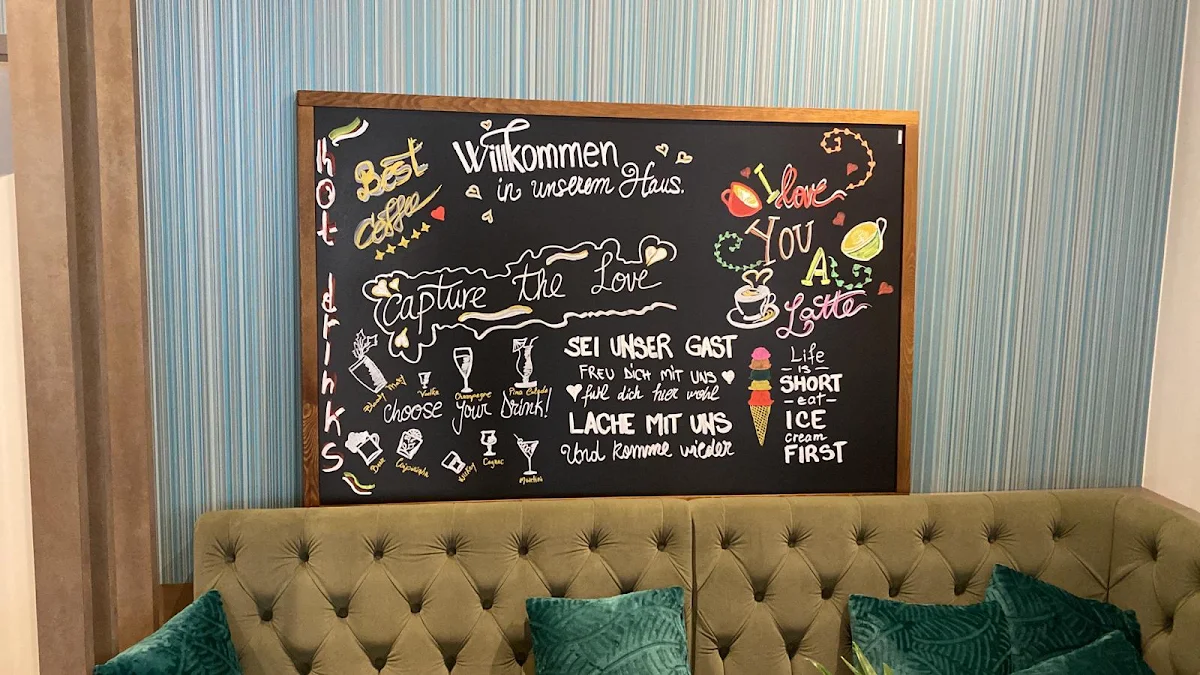 hot drinks
Best
Coffee
Willkommen
in unserem Haus.
I love
You
A
Latte
Capture the Love
Bloody Mary
Vodka
Champagne
Pina Colada
choose your Drink!
Beer
Caipirinha
Whiskey
Cognac
Martini
SEI UNSER GAST
FREU DICH MIT UNS
fühl dich hier wohl
LACHE MIT UNS
Und komme wieder
Life
IS
SHORT
-eat-
ICE
cream
FIRST